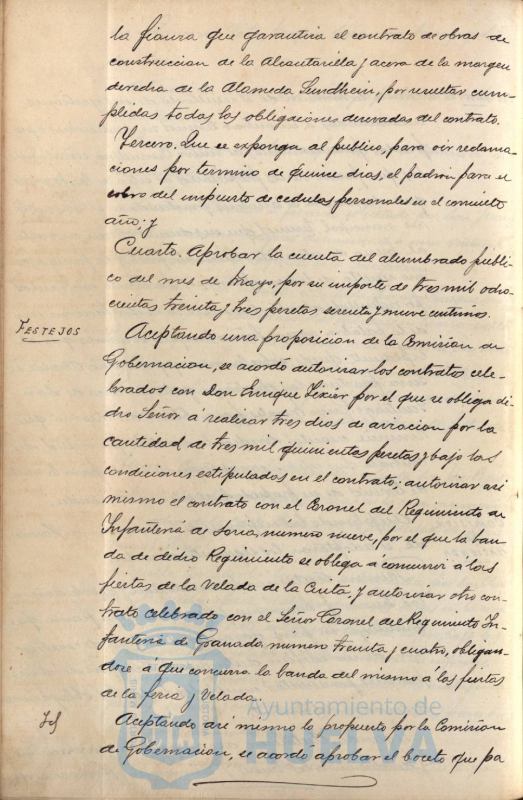 la fianza que garantiza el contrato de obras de
construccion de la Alcantarilla y acera de la margen
derecha de la Alameda Sundhein, por resultar cum-
plidas todas las obligaciones derivadas del contrato.
Tercero. Que se exponga al publico, para oir reclama
ciones por termino de quince dias, el padron para el
cobro del impuesto de cedulas personales en el corriente
año; y
Cuarto. Aprobar la cuenta del alumbrado publi
co del mes de Mayo, por su importe de tres mil ocho-
cientas treinta y tres pesetas setenta y nueve centimos.
FESTEJOS
Aceptando una proposicion de la Comision de
Gobernacion, se acordó autorizar los contratos cele-
brados con Don Enrique por el que se obliga di-
cho Señor á realizar tres dias de aviacion por la
cantidad de tres mil quinientas pesetas y bajo las
condiciones estipuladas en el contrato; autorizar asi
mismo el contrato con el Coronel del Regimiento de
Infanteria de Soria, número nueve, por el que la ban
da de dicho Regimiento se obliga á concurrir á las
fiestas de la Velada de la Cinta, y autorizar otro con-
trato celebrado con el Señor Coronel del Regimiento In-
fanteria de Granada número treinta y cuatro, obligan-
dose á que concurra la banda del mismo á las fiestas
de la feria y Velada.
Id
Aceptando asi mismo lo propuesto por la Comision
de Gobernacion, se acordó aprobar el boceto que pa
Ayuntamiento de
HUELVA